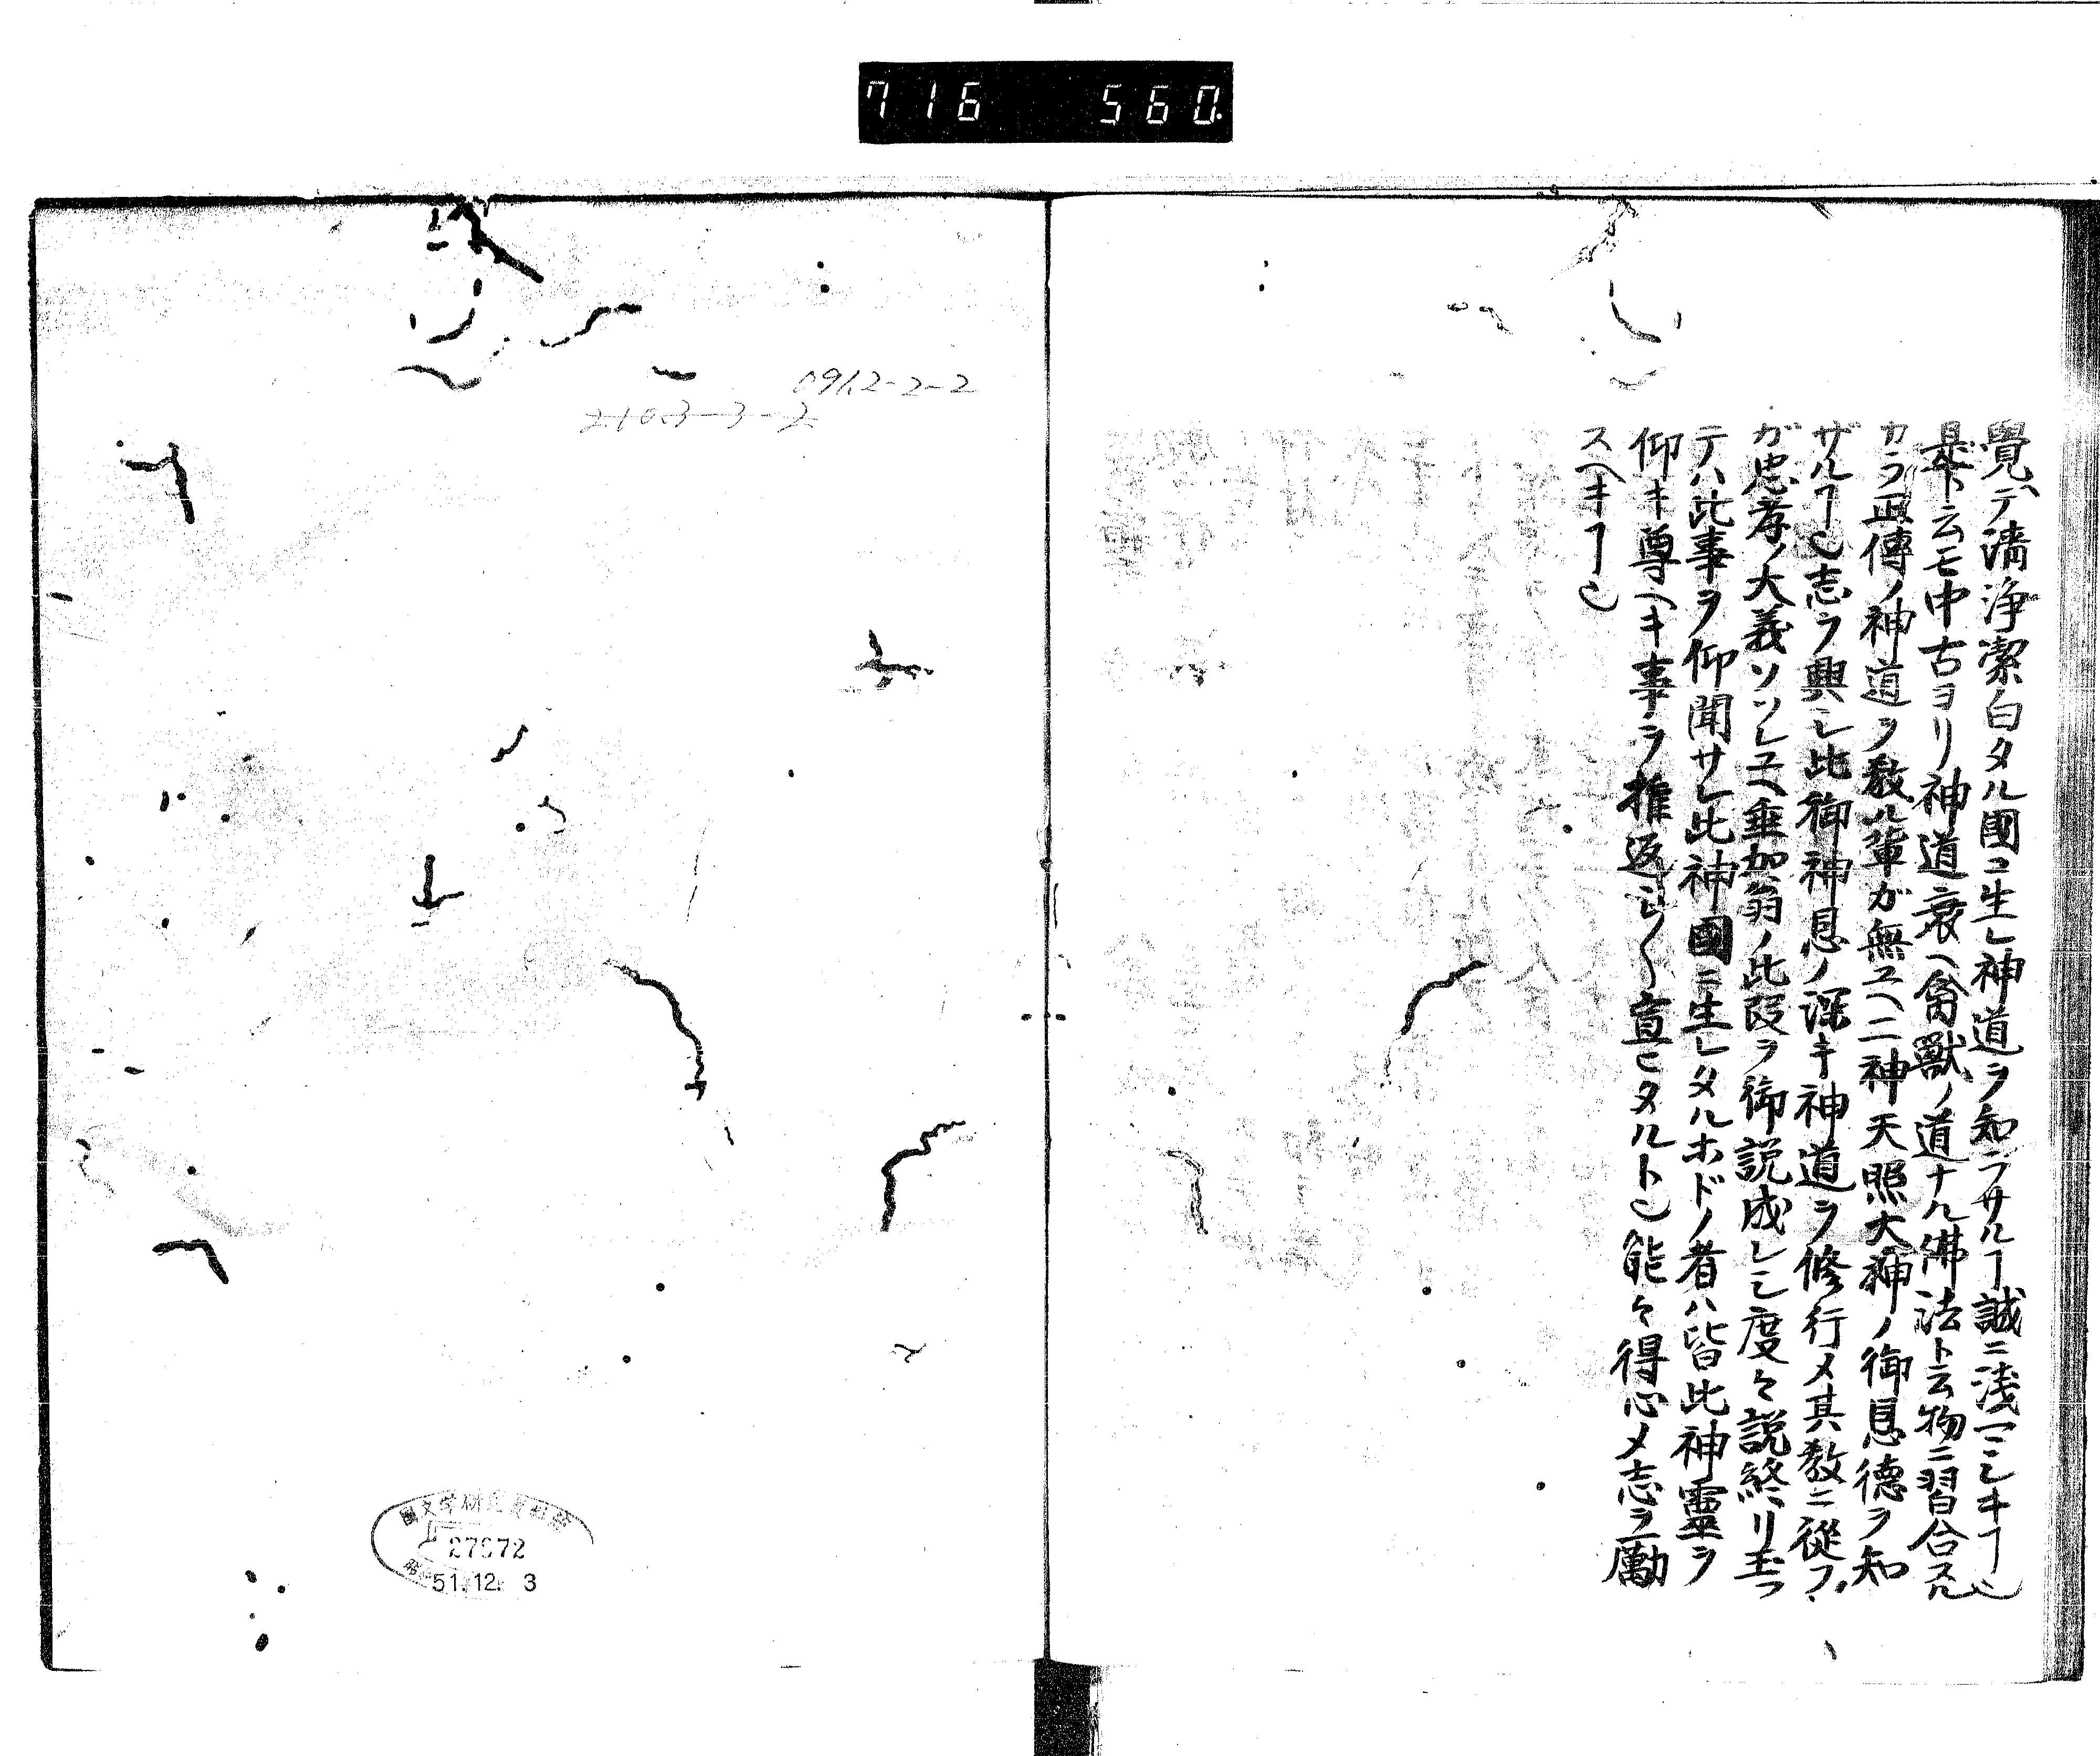 716 560
覺テ清浄潔白タル國ニ生レ神道ヲ知ラサルヿ誠ニ淺マシキヿ也
是ト云モ中古ヨリ神道衰ヘ禽獸ノ道ナル佛法ト云物ニ習合スル
カラ正傳ノ神道ヲ教ル輩ガ無ユヘ二神天照大神ノ御恩德ヲ知
ザルヿ也志ヲ興シ此御神恩ノ深キ神道ヲ修行メ其教ニ從フ
ガ忠孝ノ大義ソソレユヘ垂加翁ノ此段ヲ御説成レシ度々説終リ玉フ
テハ此事ヲ仰聞サレ此神國ニ生レタルホドノ者ハ皆此神靈ヲ
仰キ尊ヘキ事ヲ推返シ〱宣ヒタルト也能々得心メ志ヲ勵
スヘキヿ也
091.2-2-2
210.3-3-2
27672
51.12.3